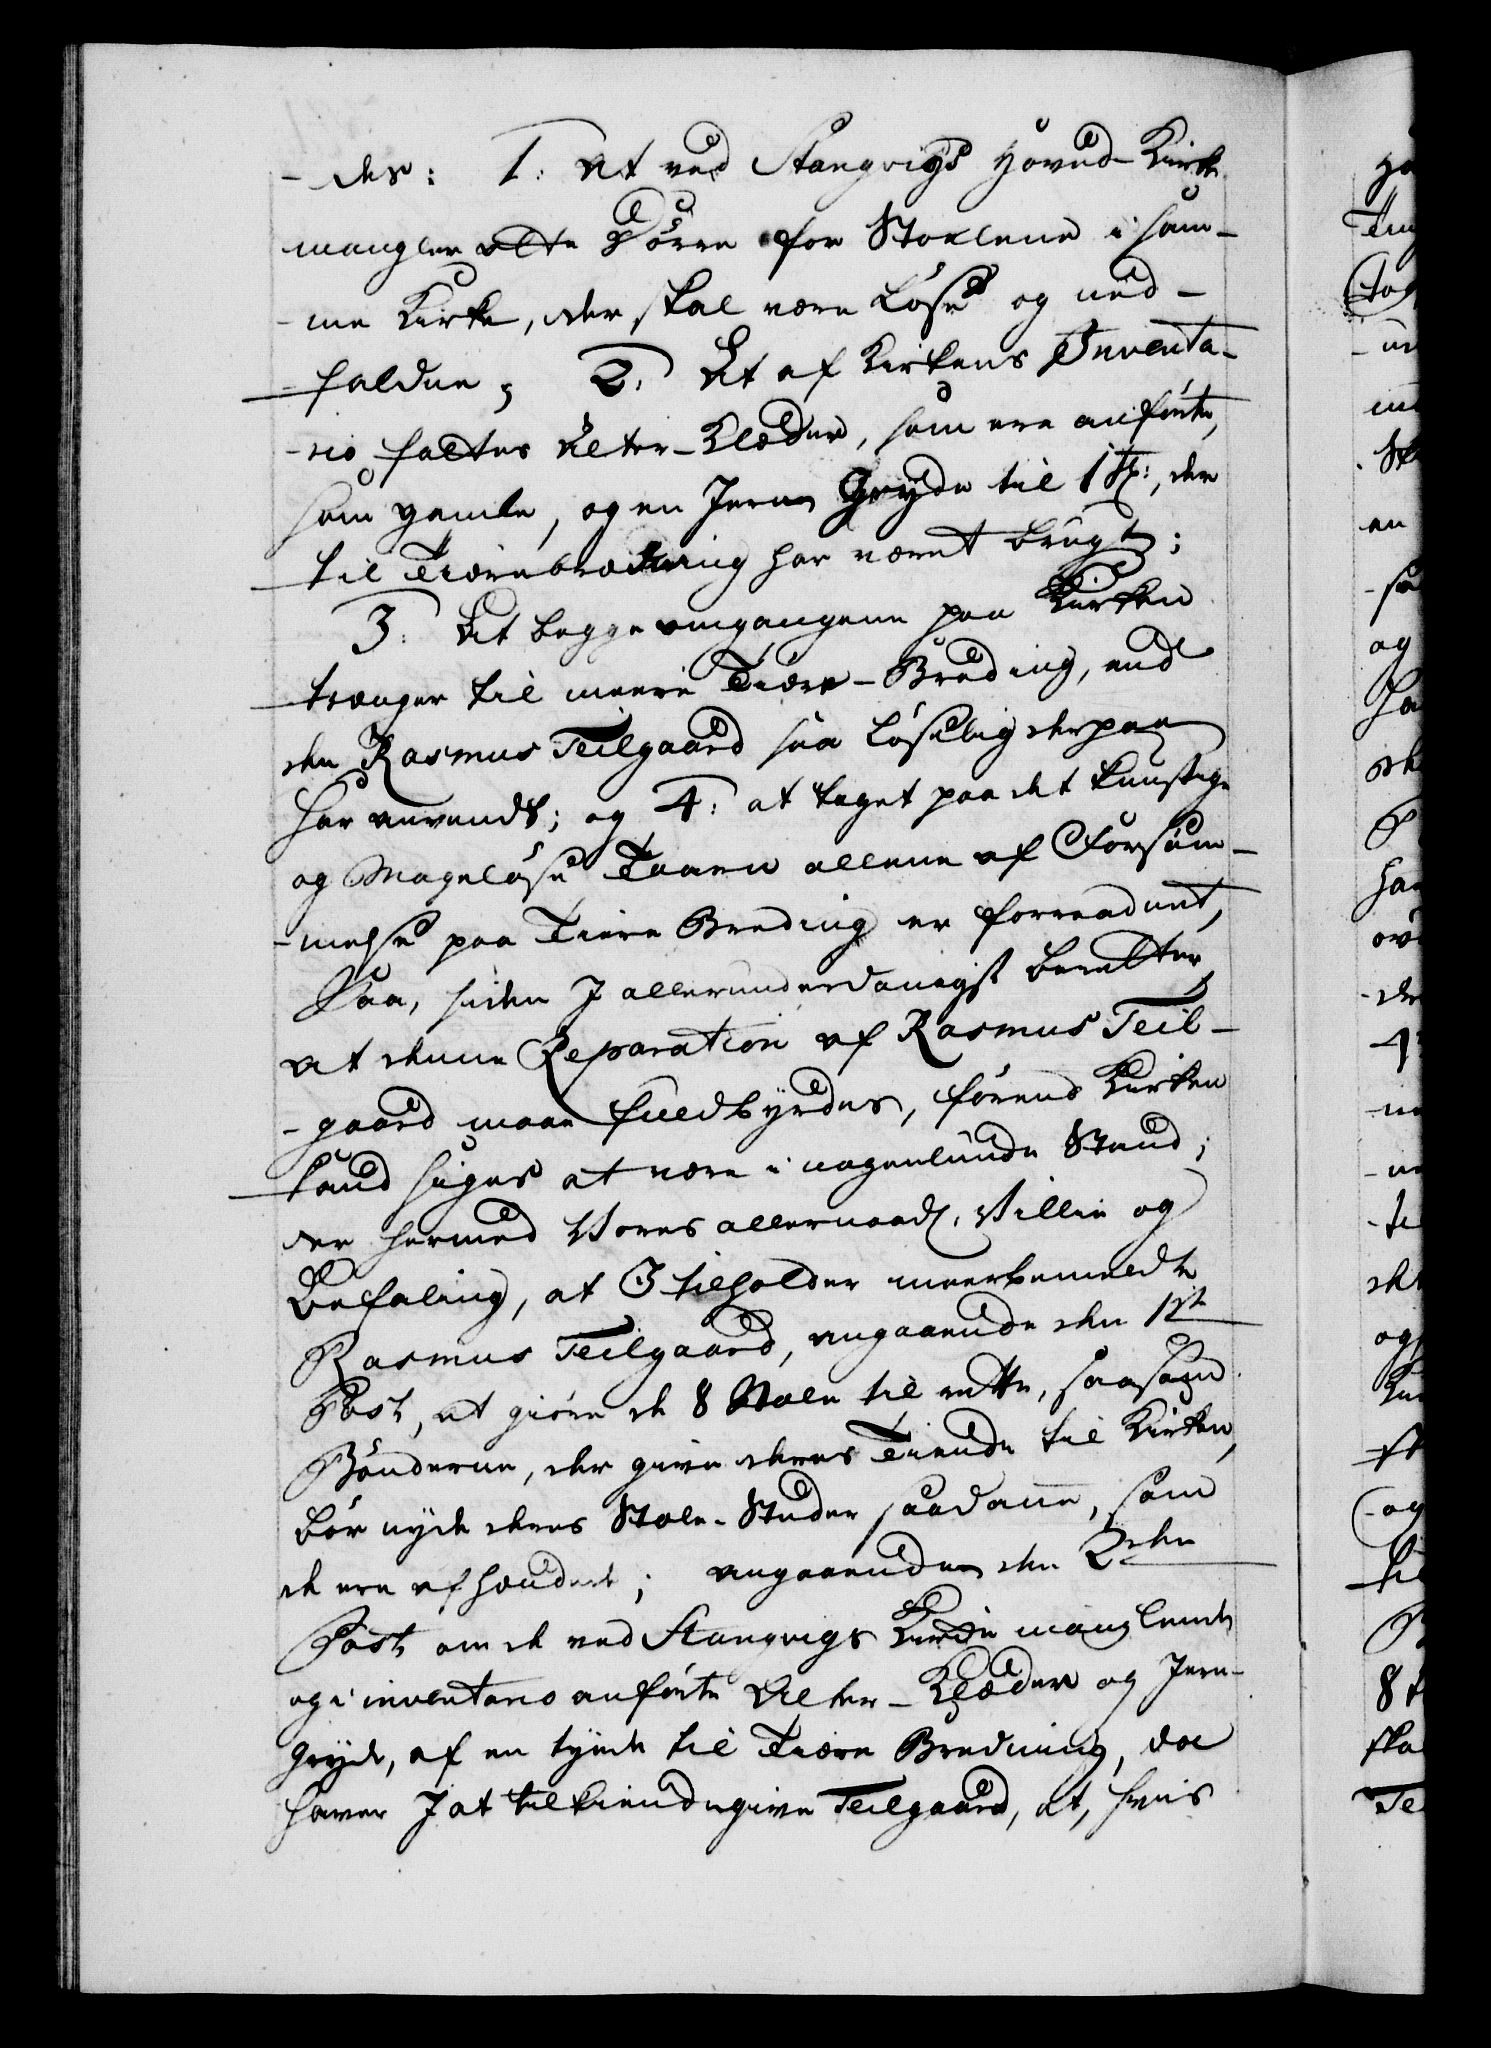 -des: 1. At ved Stangvigs Hoved-Kirke
mangler otte Dørre for Stolene i sam-
-me Kirke, der skal være løse og ned-
-faldne; 2. At af Kirkens Inventa-
-rio fattes Alter-Klæder, som ere anførte,
som gamle, og en Jern Gryde til 1 Rd:, der
til Tiærebrædning har været brugt;
3. At begge omgangene paa Kirken
trænger til meere Tiære-Breding, end
den Rasmus Teilgaard saa løselig derpaa
har anvendt; og 4. at taget paa det kunstige
og Mageløse Taarn allene af Forsøm-
-melse paa Tiære Breding er forraadnet,
Saa, siden I allerunderdanigst beretter,
at denne Reparation af Rasmus Teil-
-gaard maae fuldbyrdes, førend Kirken
kand siges at være i nogenlunde Stand;
er hermed Vores allernaad. Villie og
Befaling, at I tilholder meerbemeldte
Rasmus Teilgaard, angaaende den 1ste
Post, at giøre de 8 Stole til rette, saasom
Bønderne, der give deres Tiende til Kirken,
bør nyde deres Stole-Stader saadanne, som
de ere afhændede; angaaende den 2den
Post om de ved Stangvigs Kirke manglende
og i inventario anførte Alter-Klæder og Jern-
gryde, af en tynde til Tiære Bredning, da
haver I at tilkiendegive Teilgaard, at, hvis